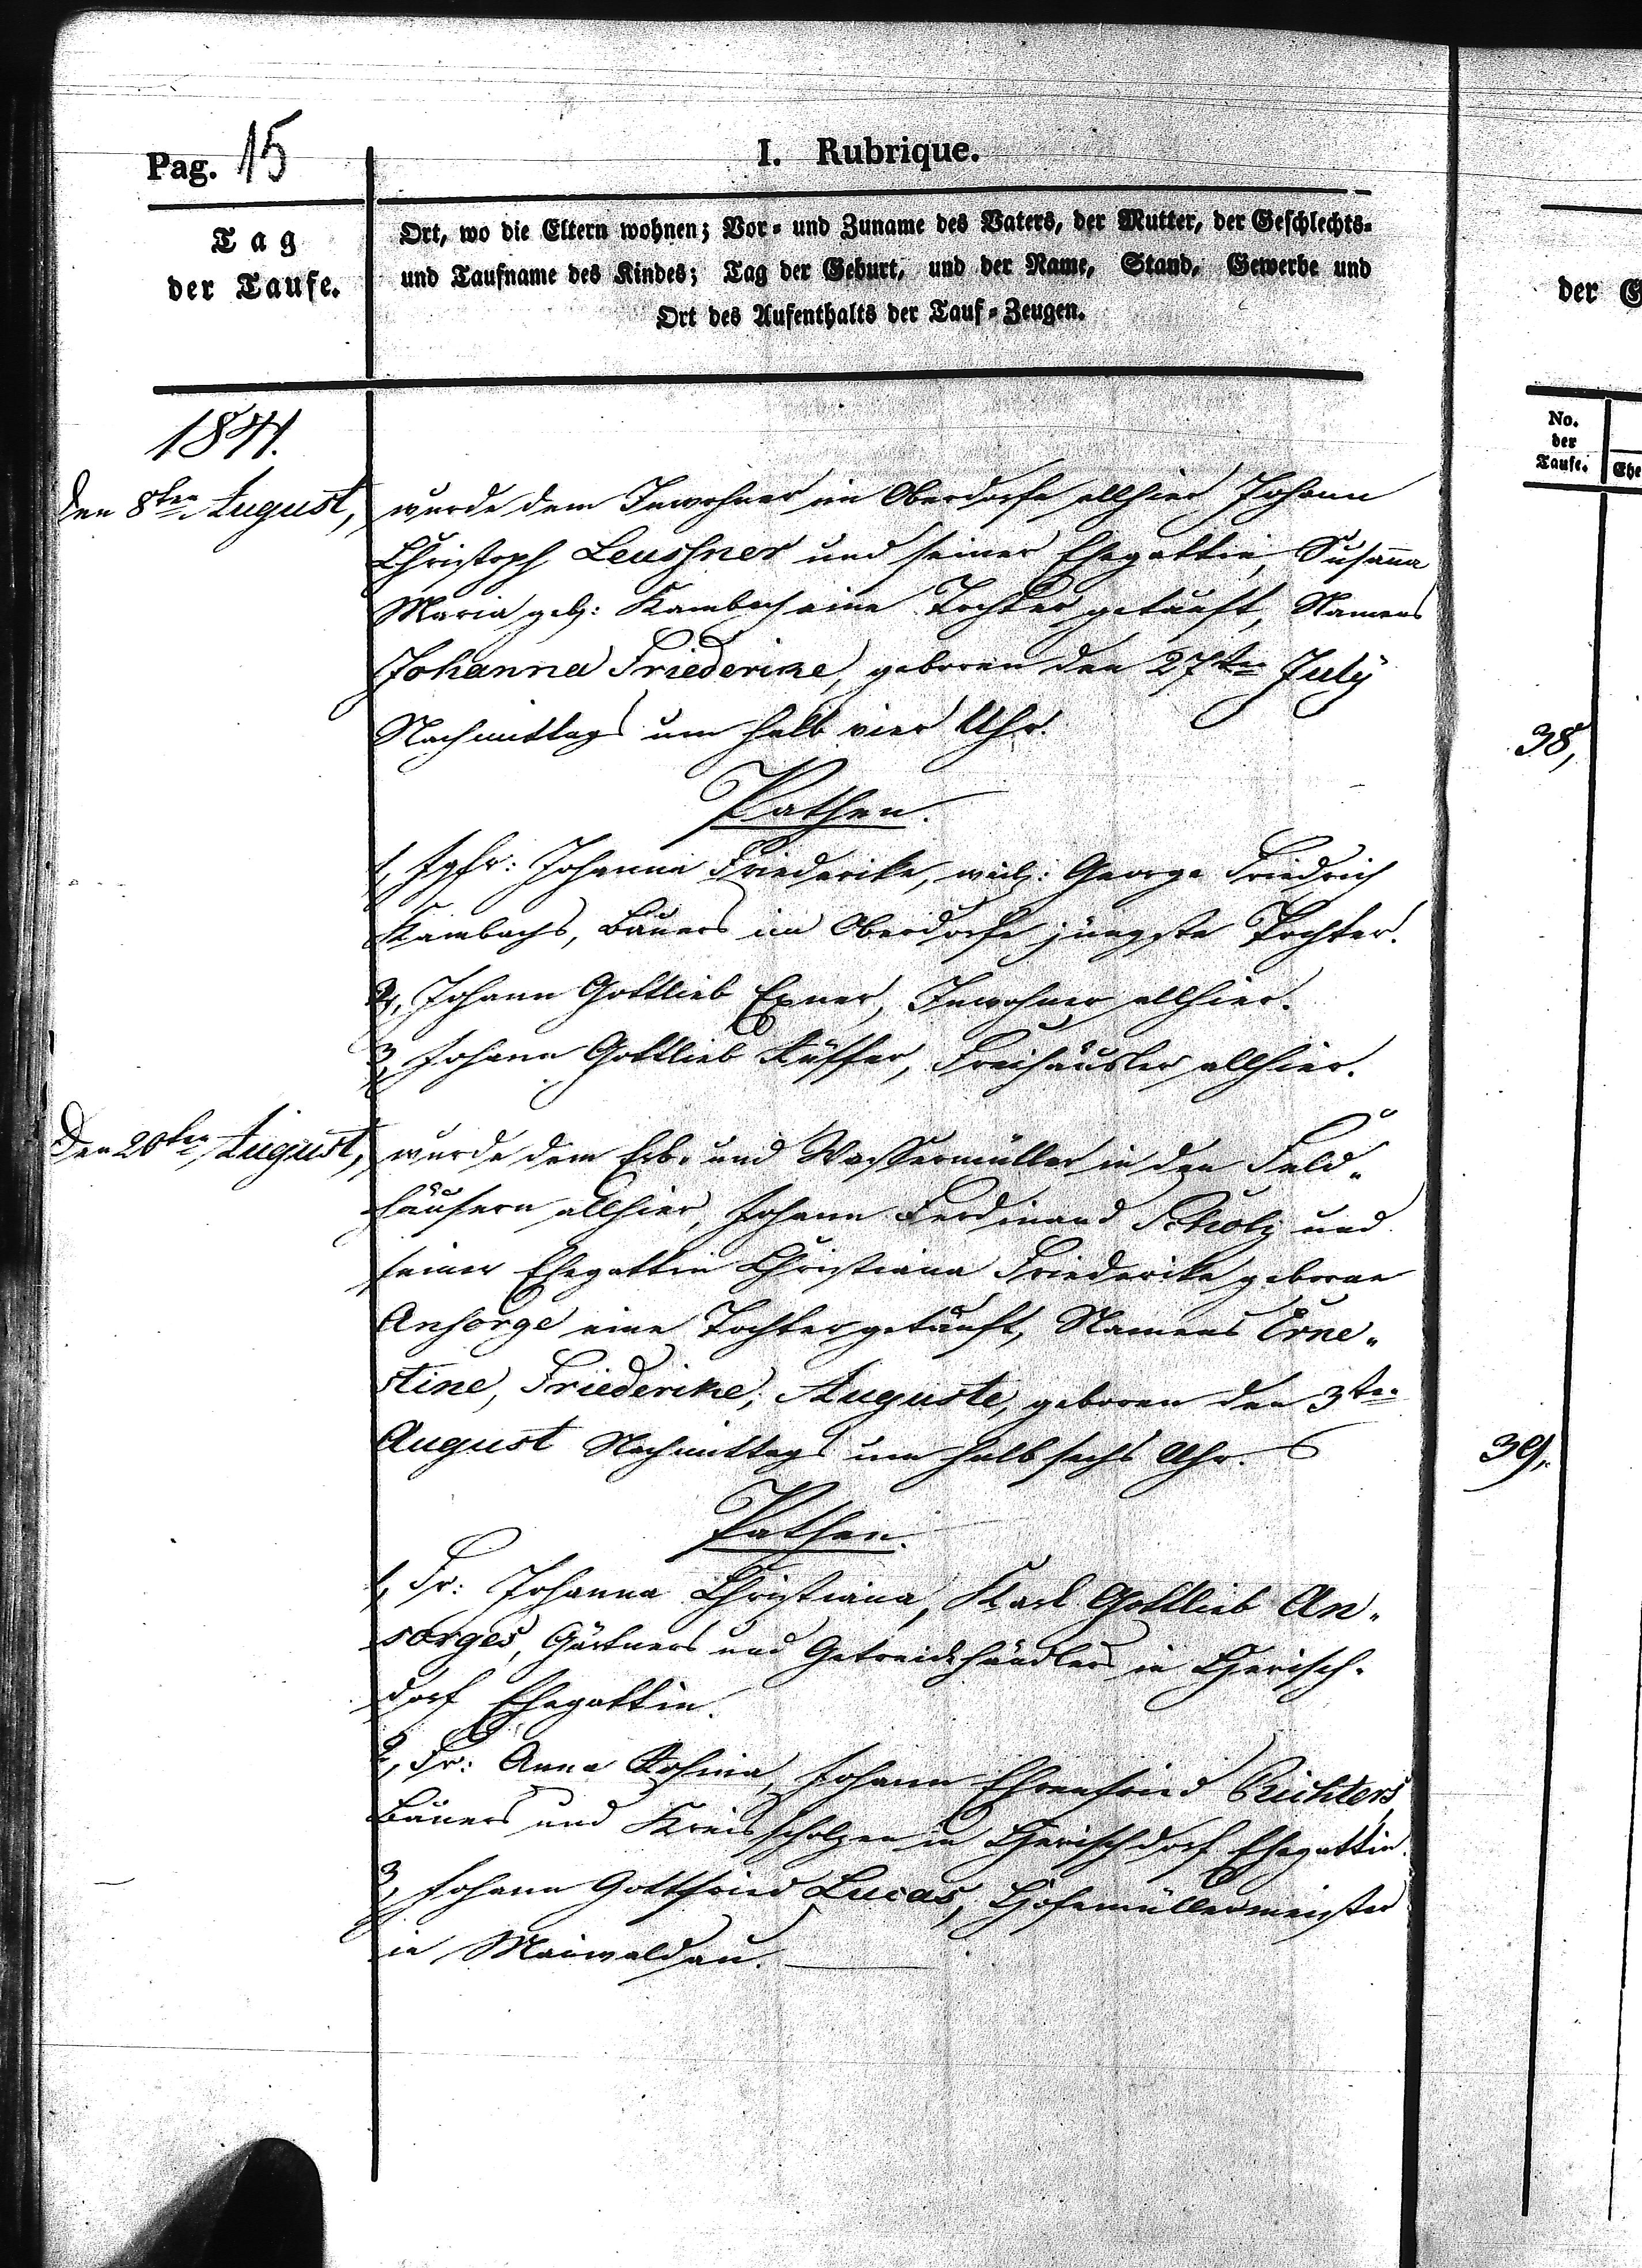 Pag. 15
I. Rubrique.
Tag
der Taufe.
Ort, wo die Eltern wohnen; Vor- und Zuname des Vaters, der Mutter, der Geschlechts-
und Taufname des Kindes; Tag der Geburt, und der Name, Stand, Gewerbe und
Ort des Aufenthalts der Tauf-Zeugen.
der G
No.
der
Taufe.
Ehe
1841.
Den 8ten August, wurde dem Inwohner im Oberdorfe allhier Johann
Christoph Leushner und seiner Ehegattin, Susaña
Maria geb: Kambach eine Tochter getauft, Namens
Johanna Friederike, geboren den 27ten July
Nachmittags um halb vier Uhr.
38,
Pathen.
1, Jgfr: Johanne Friederike, weil: George Friedrich
Kambachs, Bauers im Oberdorfe jüngste Tochter.
2, Johann Gottlieb Exner, Inwohner allhier.
3, Johann Gottlieb Küffer, Freihäusler allhier.
Den 20ten August, wurde dem Erb- und Wassermüller in den Feld-
häusern allhier, Johann Ferdinand Scholz und
seiner Ehegattin Christiana Friederike geborne
Ansorge eine Tochter getauft, Namens Erne-
stine, Friederike, Auguste, geboren den 3ten
August Nachmittags um halb sechs Uhr.
39,
Pathen.
1, Fr: Johanna Christiana, Karl Gottlieb An-
sorges, Gärtners und Getreidehändlers in Herisch-
dorf Ehegattin.
2, Fr: Anna Rosina, Johann Ehrenfried Richters,
Bauers und Kreisscholzen in Herischdorf Ehegattin.
3, Johann Gottfried Lucas, Hofemüllermeister
in Maiwaldau.